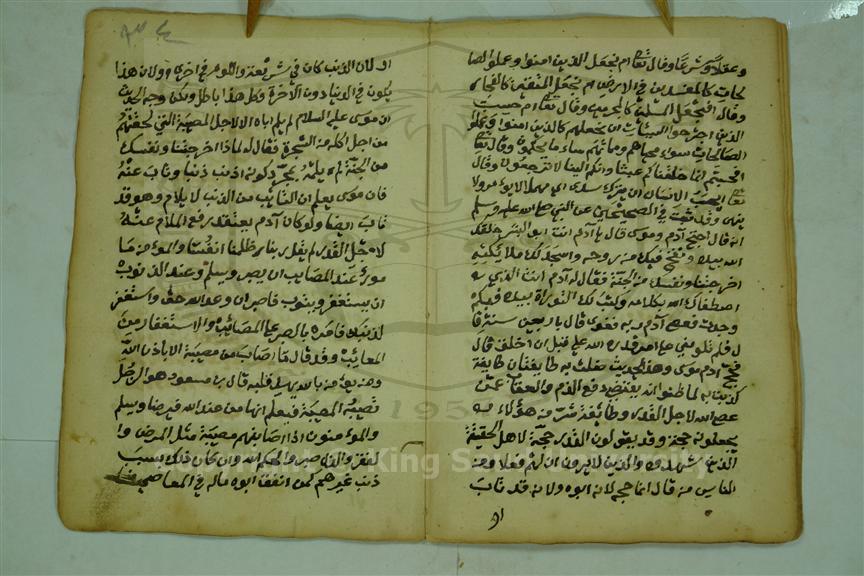 وعقلا وشرعا وقال تعالى ام نجعل الذين امنوا وعملوا الصا
لحات كالمفسدين في الارض ام نجعل المتقين كالفجار
وقال افنجعل المسلمين كالمجرمين وقال تعالى ام حسب
الذين اجترحوا السيئات ان نجعلهم كالذين امنوا وعملوا
الصالحات سواء محياهم ومماتهم ساء ما يحكمون وقال تعالى
افحسبتم انما خلقناكم عبثا وانكم الينا لا ترجعون وقال
تعالى ايحسب الانسان ان يترك سدى اي مهملا لا يؤمر ولا
ينهى وقد ثبت في الصحيحين عن النبي صلى الله عليه وسلم
انه قال احتج آدم وموسى قال يا آدم انت ابو البشر خلقك
الله بيده ونفخ فيك من روحه واسجد لك ملائكته
اخرجتنا ونفسك من الجنة فقال له آدم انت الذي
اصطفاك الله بكلامه وكتب لك التوراة بيده فبكم
وجدت فعصى آدم ربه فغوى قال باربعين سنة قا
ل فلم تلومني على امر قدره الله علي قبل ان اخلق قال
فحج آدم موسى وهذا الحديث ضلت به طائفتان طائفة
كذبت به لما ظنوا انه يقتضي رفع الذم والعقاب عن
عصى الله لاجل القدر وطائفة شر من هؤلاء
يجعلونه حجة وقد يقولون القدر حجة لاهل الحقيقة
الذين شهدوه والذين لا يرون ان لهم فعلا ومن
الناس من قال انما حجه لانه ابوه ولانه قد تاب
او
او لان الذنب كان في شريعة واللوم في اخرى ولان هذا
يكون في الدنيا دون الآخرة وكل هذا باطل ولكن وجه الحديث
ان موسى عليه السلام لم يلم اباه الا لاجل المصيبة التي لحقتهم
من اجل اكله من الشجرة فقال له لماذا اخرجتنا ونفسك
من الجنة لم يلمه بمجرد كونه اذنب ذنبا وتاب عنه
فان موسى يعلم ان التائب من الذنب لا يلام وهو قد
تاب ايضا ولو كان آدم يعتقد رفع الملام عنه
لاجل القدر لم يقل ربنا ظلمنا انفسنا والمؤمن ما
مور عند المصايب ان يصبر ويسلم وعند الذنوب
ان يستغفر ويتوب فاصبر ان وعد الله حق واستغفر
لذنبك فامره بالصبر على المصائب والاستغفار من
المعائب وقد قال ما اصاب من مصيبة الا باذن الله
ومن يؤمن بالله يهد قلبه قال بن مسعود هو الرجل
تصيبه المصيبة فيعلم انها من عند الله فيرضا ويسلم
والمؤمنون اذا اصابهم مصيبة مثل المرض وا
لفقر والذل صبروا لحكم الله وان كان ذلك بسبب
ذنب غيرهم كمن انفق ابوه ماله في المعاصي
King Saud University
1957